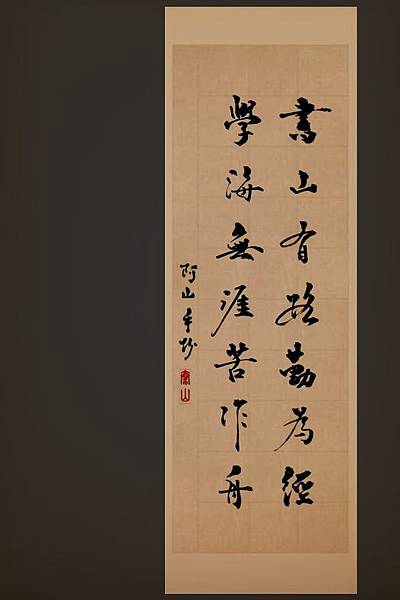 書山有路勤為經
學海無涯苦作舟
阿山手抄